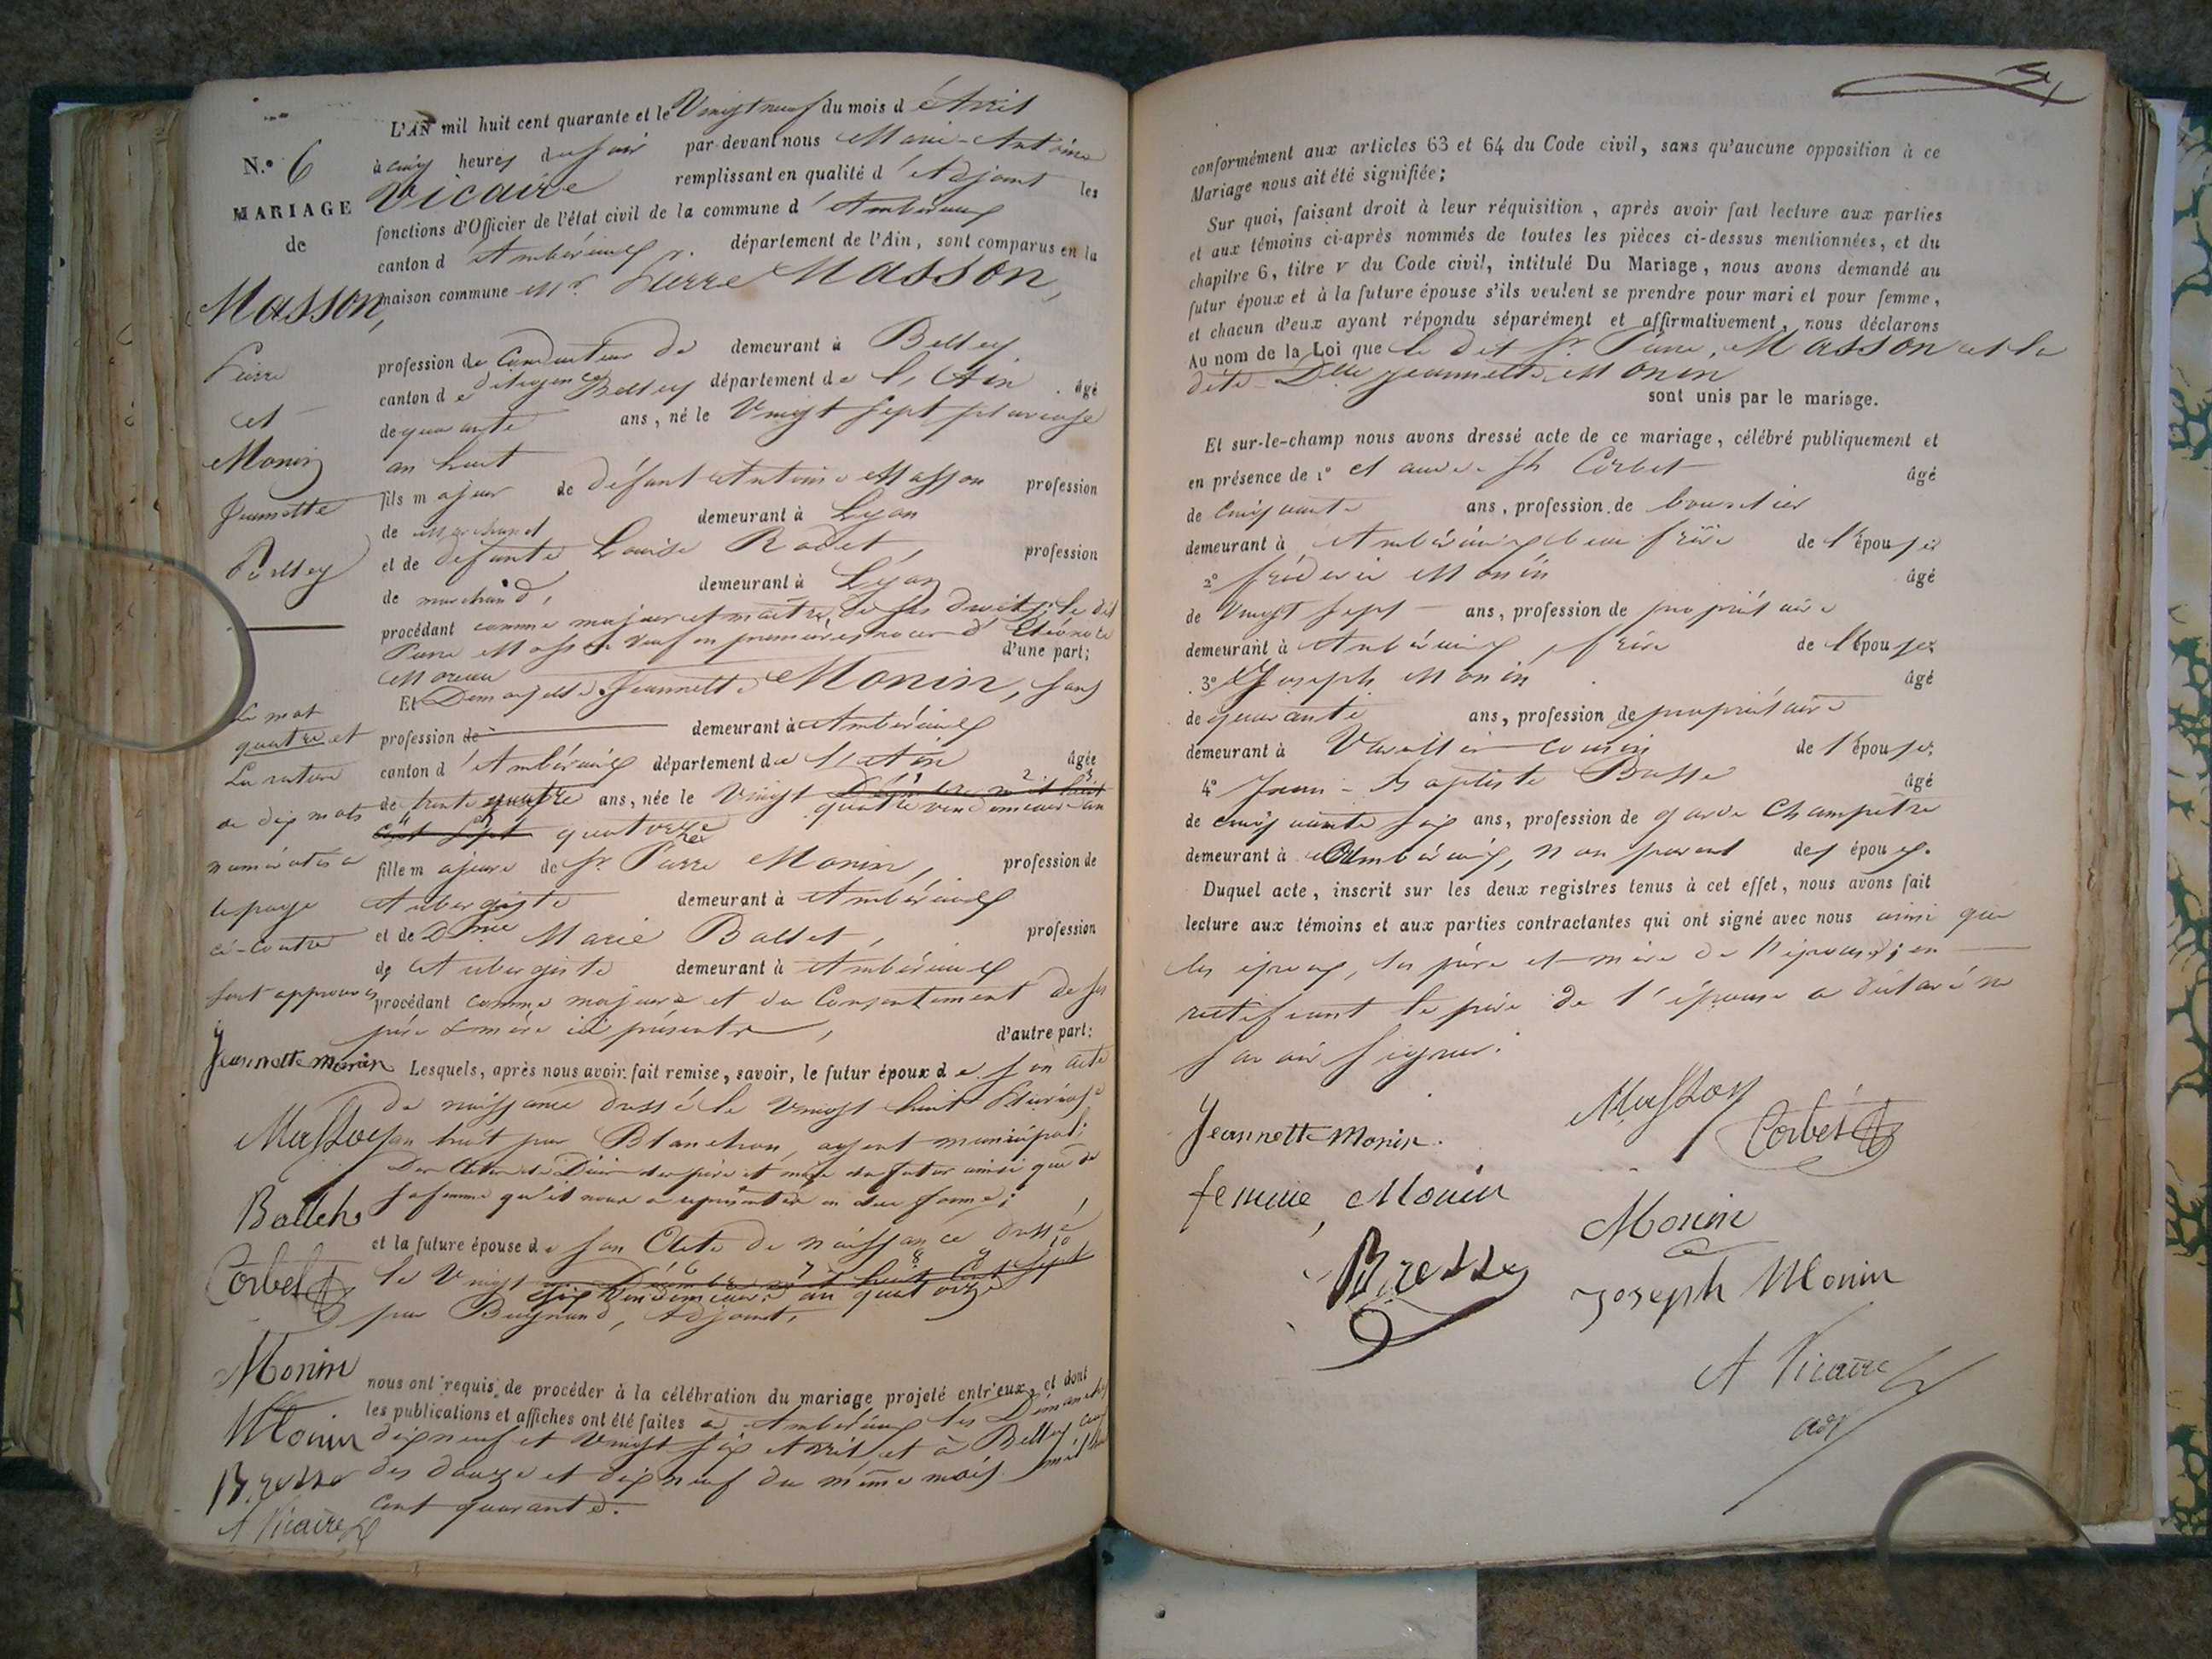 N.º 6
MARIAGE
de
Masson,
Pierre
et
Monin
Jeannette
Belley
Le mot
quatre et
La rature
de dix mots
numérotés a
la page
ci-contre
sont approuvés
Jeannette monin
Masson
Ballet
Corbet
Monin
Monin
Bresse
A Vicaire
L'AN mil huit cent quarante et le Vingt neuf du mois d'Avril
à cinq heures du soir par-devant nous Marie-Antoine
Vicaire remplissant en qualité d'Adjoint les
fonctions d'Officier de l'état civil de la commune d'Ambérieux
canton d'Ambérieux département de l'Ain, sont comparus en la
maison commune Mr. Pierre Masson,
profession de Conducteur de demeurant à Belley
diligence
canton de Belley département de l'Ain âgé
de quarante ans, né le Vingt sept pluviose
an huit
fils majeur de défunt Antoine Masson profession
de marchand demeurant à Lyon
et de defunte Louise Rodet, profession
de marchand, demeurant à Lyon
procédant comme majeur et maître de ses droits; le dit
Pierre Masson Veuf en premières noces d'Eléonore
Moreau d'une part;
Et Demoiselle Jeannette Monin, sans
profession de demeurant à Ambérieux
canton d'Ambérieux département de l'Ain âgée
de trente quatre ans, née le Vingt Décembre mil huit
quatre vendemiaire an
cent sept quatorze
fille majeure de Sr. Pierre Monin, profession de
Aubergiste demeurant à Ambérieux
et de Dme Marie Ballet, profession
de Aubergiste demeurant à Ambérieux
procédant comme majeure et du Consentement de ses
père & mère ici présents, d'autre part:
Lesquels, après nous avoir fait remise, savoir, le futur époux de son acte
de naissance dressé le Vingt huit Pluviose
an huit par Blanchon, agent municipal;
Des Actes de Décès des père et mère du futur ainsi que de
sa femme qu'il nous a représentés en due forme;
et la future épouse de son Acte de naissance dressé
le Vingt Décembre mil huit Cent sept
six Vendemiaire an quatorze
par Buynand, Adjoint,
nous ont requis de procéder à la célébration du mariage projeté entr'eux, et dont
les publications et affiches ont été faites à Ambérieux les Dimanches
dix neuf et Vingt six Avril, et à Belley ceux
des douze et dix neuf du même mois mil huit
Cent quarante.
conformément aux articles 63 et 64 du Code civil, sans qu'aucune opposition à ce
Mariage nous ait été signifiée;
Sur quoi, faisant droit à leur réquisition, après avoir fait lecture aux parties
et aux témoins ci-après nommés de toutes les pièces ci-dessus mentionnées, et du
chapitre 6, titre V du Code civil, intitulé Du Mariage, nous avons demandé au
futur époux et à la future épouse s'ils veulent se prendre pour mari et pour femme,
et chacun d'eux ayant répondu séparément et affirmativement, nous déclarons
Au nom de la Loi que le dit Sr. Pierre, Masson et la
dite Dlle Jeannette Monin
sont unis par le mariage.
Et sur-le-champ nous avons dressé acte de ce mariage, célébré publiquement et
en présence de 1º Corbet âgé
de Cinquante ans, profession de bourrelier
demeurant à Ambérieux beau frère de l'épouse
2º fréderic Monin âgé
de Vingt sept ans, profession de propriétaire
demeurant à Ambérieux, frère de l'épouse;
3º Joseph Monin âgé
de quarante ans, profession de propriétaire
demeurant à Vareille cousin de l'épouse;
4º Jean-Baptiste Bresse âgé
de cinquante six ans, profession de garde Champêtre
demeurant à Ambérieux, non parent des époux.
Duquel acte, inscrit sur les deux registres tenus à cet effet, nous avons fait
lecture aux témoins et aux parties contractantes qui ont signé avec nous ainsi que
les époux, les père et mère de l'épouse; en
rectifiant le père de l'épouse a déclaré ne
savoir signer.
Jeannette monin.
Masson
Corbet
femme, Monin
Monin
Bresse
Joseph Monin
A Vicaire
adj